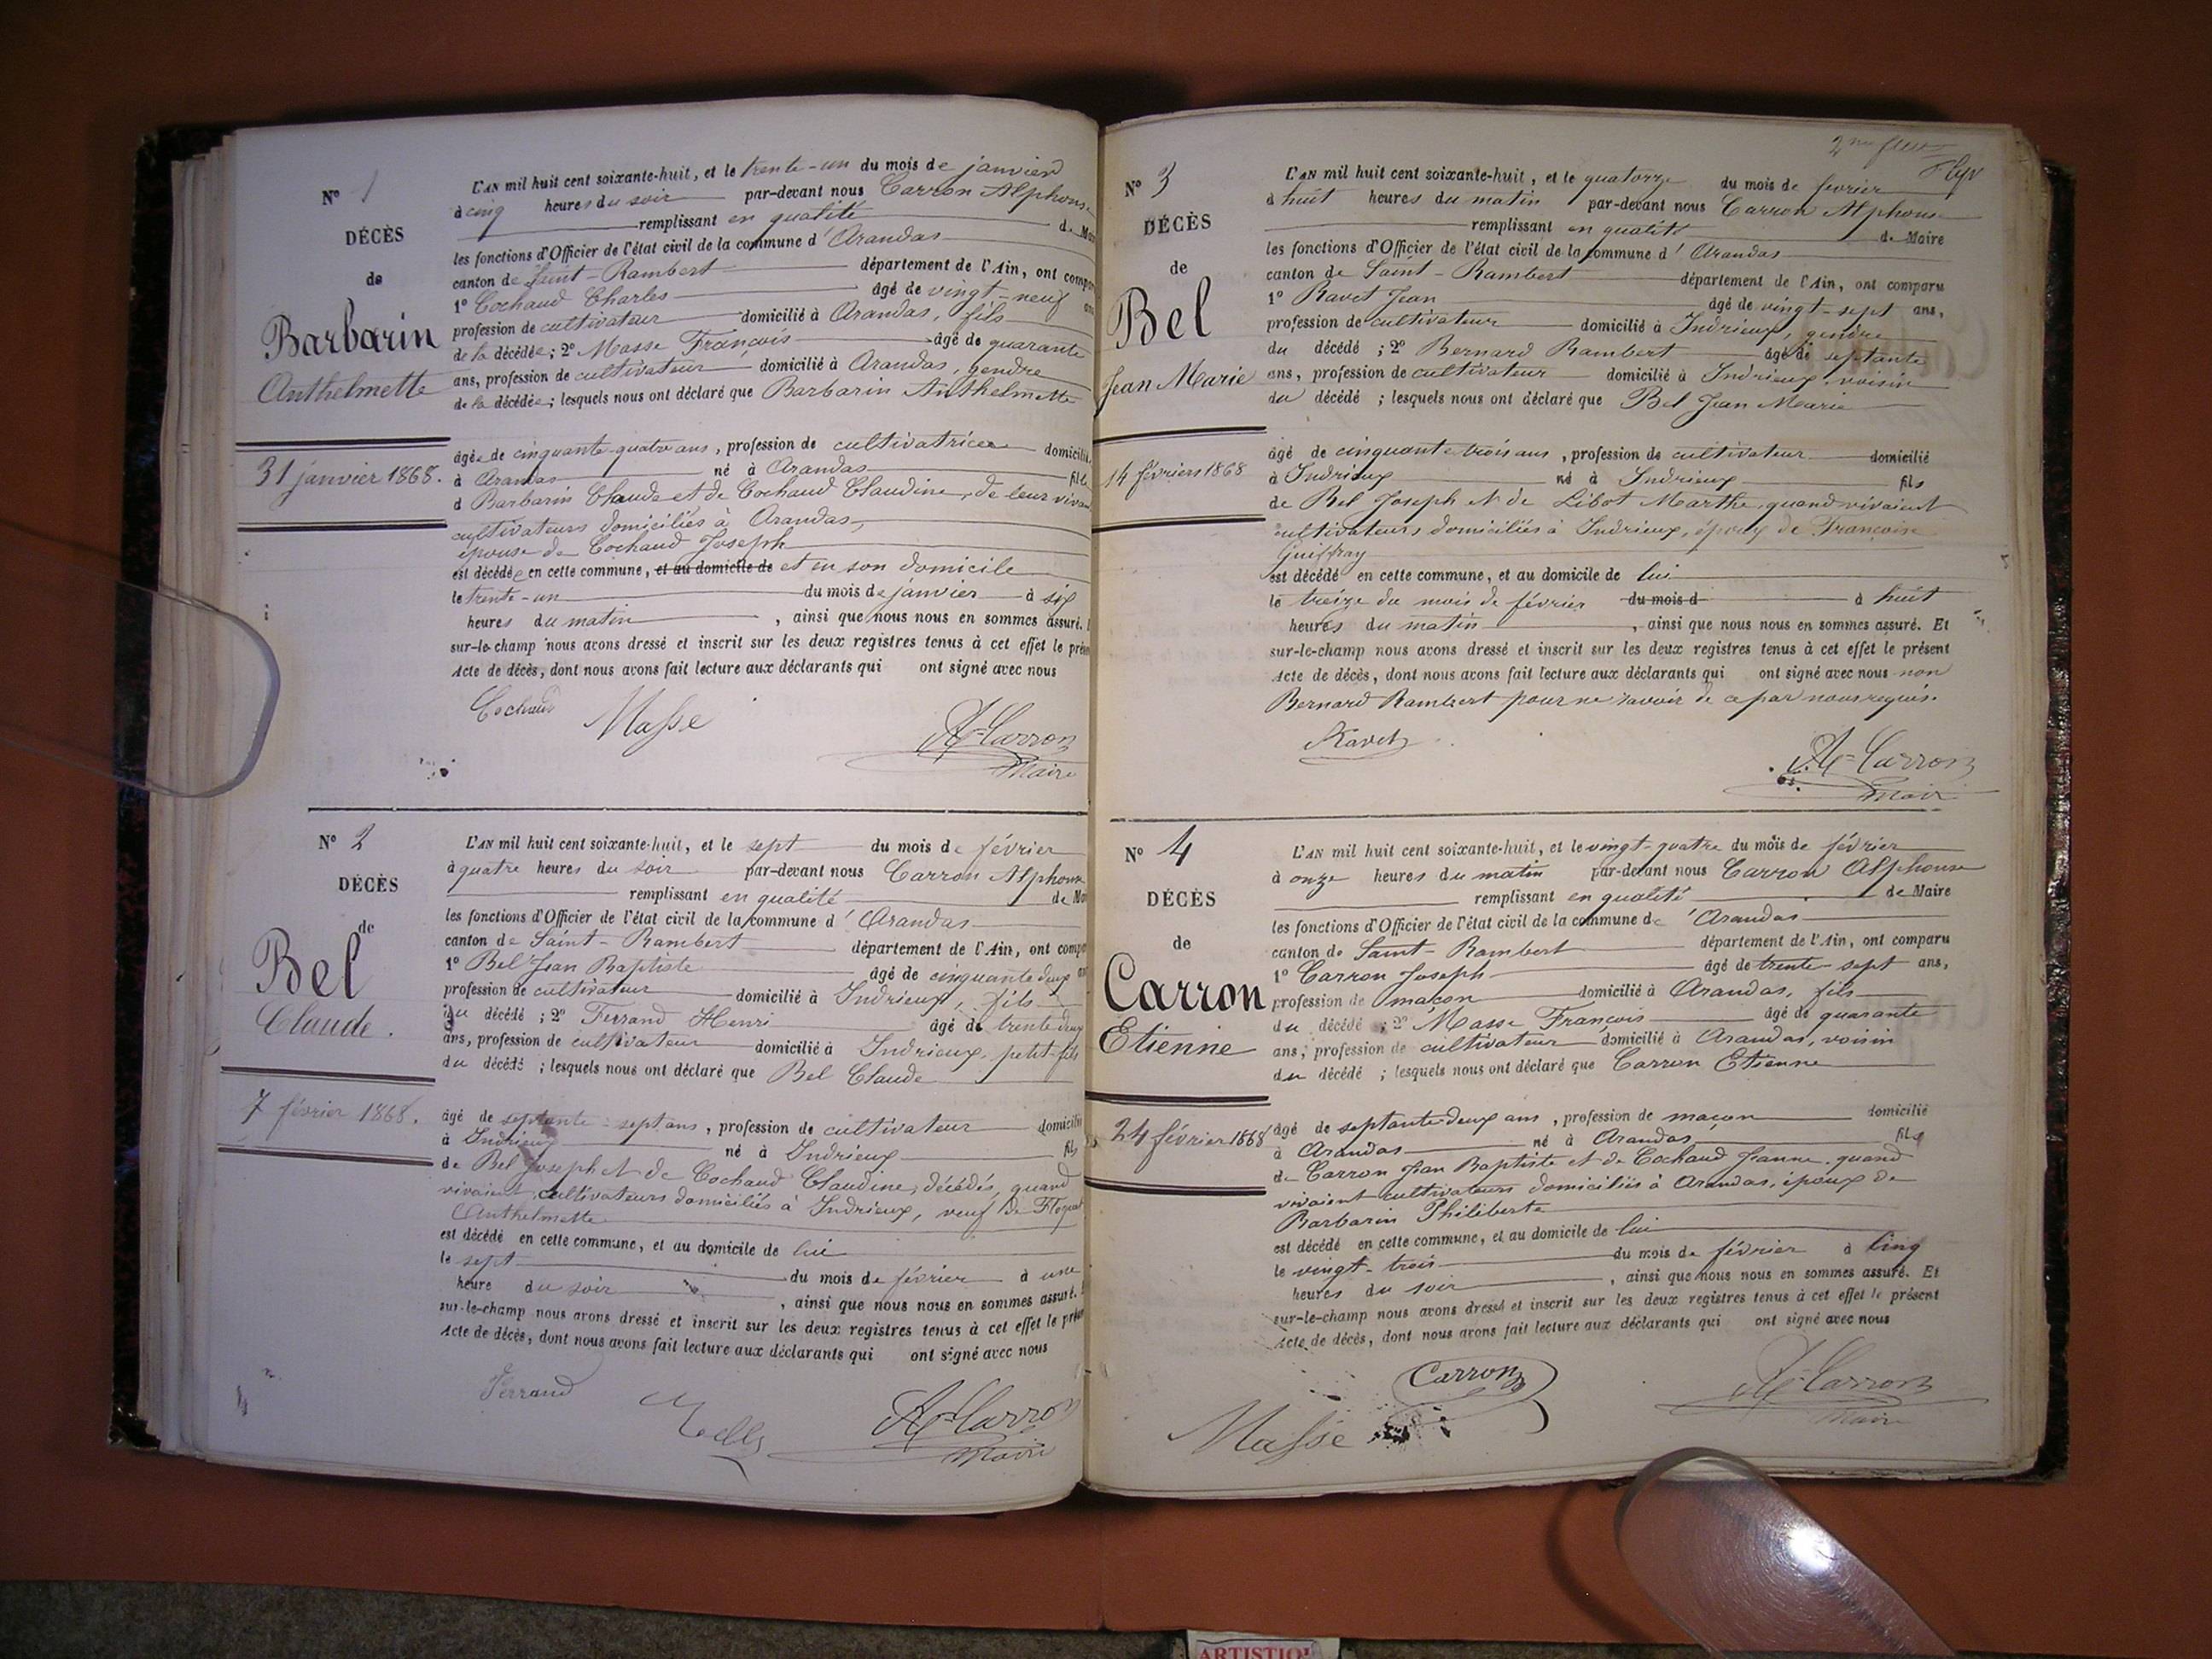 N° 1
DÉCÈS
de
Barbarin
Anthelmette
31 janvier 1868.
L'AN mil huit cent soixante-huit, et le trente-un du mois de janvier
à cinq heures du soir par-devant nous Carron Alphonse
remplissant en qualité de Mai
les fonctions d'Officier de l'état civil de la commune d'Arandas
canton de Saint-Rambert département de l'Ain, ont compa
1° Cochaud Charles âgé de vingt-neuf ans
profession de cultivateur domicilié à Arandas, fils
de la décédée; 2° Masse François âgé de quarante
ans, profession de cultivateur domicilié à Arandas, gendre
de la décédée; lesquels nous ont déclaré que Barbarin Anthelmette
âgée de cinquante-quatre ans, profession de cultivatrice domicilié
à Arandas né à Arandas fille
d Barbarin Claude et de Cochaud Claudine, de leur vivan
cultivateurs domiciliés à Arandas,
épouse de Cochaud Joseph
est décédée en cette commune, et au domicile de et en son domicile
le trente-un du mois de janvier à six
heures du matin, ainsi que nous nous en sommes assuré.
sur-le-champ nous avons dressé et inscrit sur les deux registres tenus à cet effet le prés
Acte de décès, dont nous avons fait lecture aux déclarants qui ont signé avec nous
Cochaud Masse A. Carron
Maire
N° 2
DÉCÈS
de
Bel
Claude.
7 février 1868.
L'AN mil huit cent soixante-huit, et le sept du mois de février
à quatre heures du soir par-devant nous Carron Alphonse
remplissant en qualité de Mai
les fonctions d'Officier de l'état civil de la commune d'Arandas
canton de Saint-Rambert département de l'Ain, ont compa
1° Bel Jean Baptiste âgé de cinquante deux an
profession de cultivateur domicilié à Indrieux, fils
du décédé; 2° Ferrand Henri âgé de trente deux
ans, profession de cultivateur domicilié à Indrieux, petit-fils
du décédé; lesquels nous ont déclaré que Bel Claude
âgé de septante-sept ans, profession de cultivateur domicilié
à Indrieux né à Indrieux fils
de Bel Joseph et de Cochaud Claudine, décédés, quand
vivaient, cultivateurs domiciliés à Indrieux, veuf de
Anthelmette
est décédé en cette commune, et au domicile de lui
le sept du mois de février à une
heure du soir, ainsi que nous nous en sommes assuré.
sur-le-champ nous avons dressé et inscrit sur les deux registres tenus à cet effet le prés
Acte de décès, dont nous avons fait lecture aux déclarants qui ont signé avec nous
Ferrand A. Carron
Maire
N° 3
DÉCÈS
de
Bel
Jean Marie
14 février 1868
L'AN mil huit cent soixante-huit, et le quatorze du mois de février
à huit heures du matin par-devant nous Carron Alphonse
remplissant en qualité de Maire
les fonctions d'Officier de l'état civil de la commune d'Arandas
canton de Saint-Rambert département de l'Ain, ont comparu
1° Ravet Jean âgé de vingt-sept ans,
profession de cultivateur domicilié à Indrieux, gendre
du décédé; 2° Bernard Rambert âgé de septante
ans, profession de cultivateur domicilié à Indrieux voisin
du décédé; lesquels nous ont déclaré que Bel Jean Marie
âgé de cinquante-trois ans, profession de cultivateur domicilié
à Indrieux né à Indrieux fils
de Bel Joseph et de Libot Marthe, quand vivaient
cultivateurs domiciliés à Indrieux, époux de Françoise
Guiffray
est décédé en cette commune, et au domicile de lui
le treize du mois de février du mois d à huit
heures du matin, ainsi que nous nous en sommes assuré. Et
sur-le-champ nous avons dressé et inscrit sur les deux registres tenus à cet effet le présent
Acte de décès, dont nous avons fait lecture aux déclarants qui ont signé avec nous non
Bernard Rambert pour ne savoir de ce par nous requis.
Ravet A. Carron
Maire
N° 4
DÉCÈS
de
Carron
Etienne
24 février 1868
L'AN mil huit cent soixante-huit, et le vingt-quatre du mois de février
à onze heures du matin par-devant nous Carron Alphonse
remplissant en qualité de Maire
les fonctions d'Officier de l'état civil de la commune de 'Arandas
canton de Saint-Rambert département de l'Ain, ont comparu
1° Carron Joseph âgé de trente-sept ans,
profession de maçon domicilié à Arandas, fils
du décédé; 2° Masse François âgé de quarante
ans, profession de cultivateur domicilié à Arandas, voisin
du décédé; lesquels nous ont déclaré que Carron Etienne
âgé de septante-deux ans, profession de maçon domicilié
à Arandas né à Arandas fils
de Carron Jean Baptiste et de Cochaud Jeanne, quand
vivaient cultivateurs domiciliés à Arandas, époux de
Barbarin Philiberte
est décédé en cette commune, et au domicile de lui
le vingt-trois du mois de février à cinq
heures du soir, ainsi que nous nous en sommes assuré. Et
sur-le-champ nous avons dressé et inscrit sur les deux registres tenus à cet effet le présent
Acte de décès, dont nous avons fait lecture aux déclarants qui ont signé avec nous
Carron A. Carron
Masse Maire